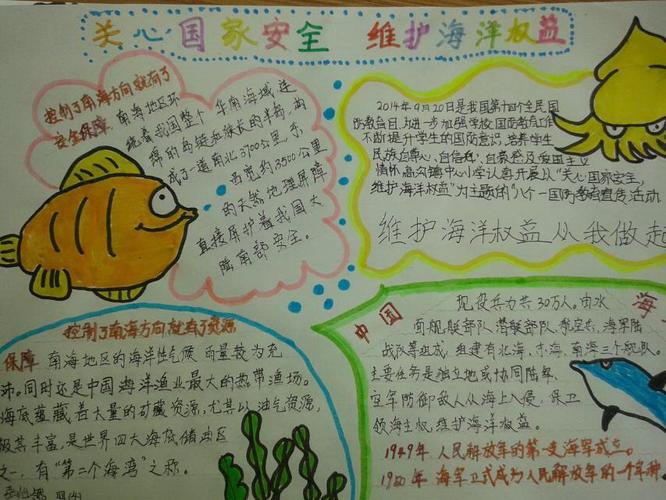 关心国家安全 维护海洋权益
控制了南海方向就有了
安全保障,南海地区环
绕着我国整个华南海域,连
绵的岛链和狭长的半岛,构
成了一道南北2700公里,东
西宽约3500公里
的天然地理屏障
直接屏护着我国大
陆南部安全。
2014年9月20日是我国第十四个全民国
防教育日,为进一步加强学校国防教育工作
不断提升学生的国防意识,培养学生
民族自尊心,自信心,自豪感及爱国主义
情怀,高刘镇中心小学认真开展以“关心国家安全,
维护海洋权益”为主题的“八个一国防教育宣传活动
维护海洋权益从我做起
控制了南海方向就有了资源
保障 南海地区的海洋性气候 雨量较为充
沛。同时还是中国海洋渔业最大的热带渔场。
海底蕴藏着大量的矿藏资源,尤其以油气资源,
极其丰富,是世界四大海底储油区
之一,有“第二个海湾”之称。
中国海
现役兵力共30万人。由水
面舰艇部队 潜艇部队、航空兵、海军陆
战队等组成,组建有北海、东海、南海三个舰队。
主要任务是独立地或协同陆军、
空军防御敌人从海上入侵,保卫
领海主权,维护海洋权益。
1949年 人民解放军的第一支海军成立。
1950年 海军正式成为人民解放军的一个军种